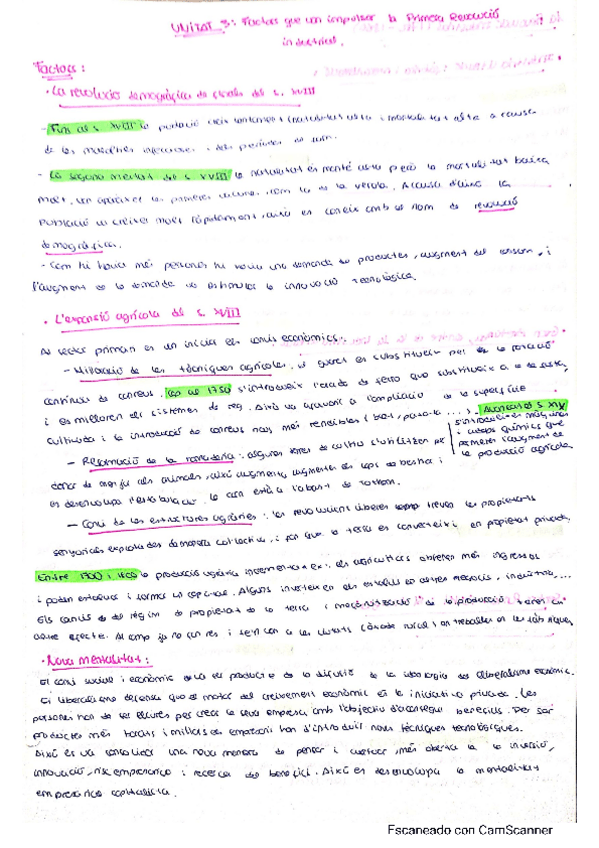 UNITAT 3: Factors que van impulsar la Primera Revolució
industrial.
Factors:
· La revolució demogràfica de finals del s. XVIII
- Fins al s XVIII la població creix lentament (natalitat alta i mortalitat alta a causa
de les malalties infeccioses i dels períodes de fam.
- La segona meitat del s XVIII la natalitat es manté alta però la mortalitat baixa
molt, van aparèixer les primeres vacunes, com la de la verola. A causa d'això la
població va créixer molt ràpidament, això es coneix amb el nom de revolució
demogràfica.
- Com hi havia més persones hi havia una demanda de productes, augment del consum, i
l'augment de la demanda va estimular la innovació tecnològica.
· L'expansió agrícola del s. XVIII
Al sector primari es on inicia els canvis econòmics:
- Milloració de les tècniques agrícoles: el guaret es substitueix pel de la rotació
contínua de conreus. Cap al 1750 s'introdueix l'arada de ferro que substitueix a la de fusta,
i es milloren els sistemes de reg. Això va ajudar a l'ampliació de la superfície
cultivada i la introducció de conreus nous més rendibles (blat, patata...). Avançat el s XIX
s'introdueixen màquines
i adobs químics que
permeten l'augment de
la producció agrícola.
- Reformació de la ramaderia: algunes zones de cultiu s'utilitzen per
donar de menjar als animals, així augmenta, augmenten els caps de bestiar i
es desenvolupa l'estabulació. La carn està a l'abast de tothom.
- Canvi de les estructures agràries: les revolucions liberals treuen les propietats
senyorials explotades de manera col·lectiva, i fan que la terra es converteixi en propietat privada.
Entre 1700 i 1800 la producció agrària incrementa x: els agricultors obtenen més ingressos
i poden estalviar i formar un capital. Alguns inverteixen els estalvis en altres negocis, indústria, ...
Els canvis del règim de propietat de la terra i mecanització de la producció tenen un
altre efecte. Al camp ja no cal res i se'n van a les ciutats (èxode rural) on treballen en les fàbriques.
· Nova mentalitat:
El canvi social i econòmic va ser producte de la difusió de la ideologia del liberalisme econòmic.
El liberalisme defensa que el motor del creixement econòmic és la iniciativa privada. Les
persones han de ser lliures per crear la seva empresa amb l'objectiu d'aconseguir beneficis. Per ser
productes més barats i millors els empresaris han d'introduir nous tècniques tecnològiques.
Així es va consolidar una nova manera de pensar i actuar, més oberta a la inversió,
innovació, risc empresarial i recerca del benefici. Així es desenvolupa la mentalitat
empresarial capitalista.
Escaneado con CamScanner